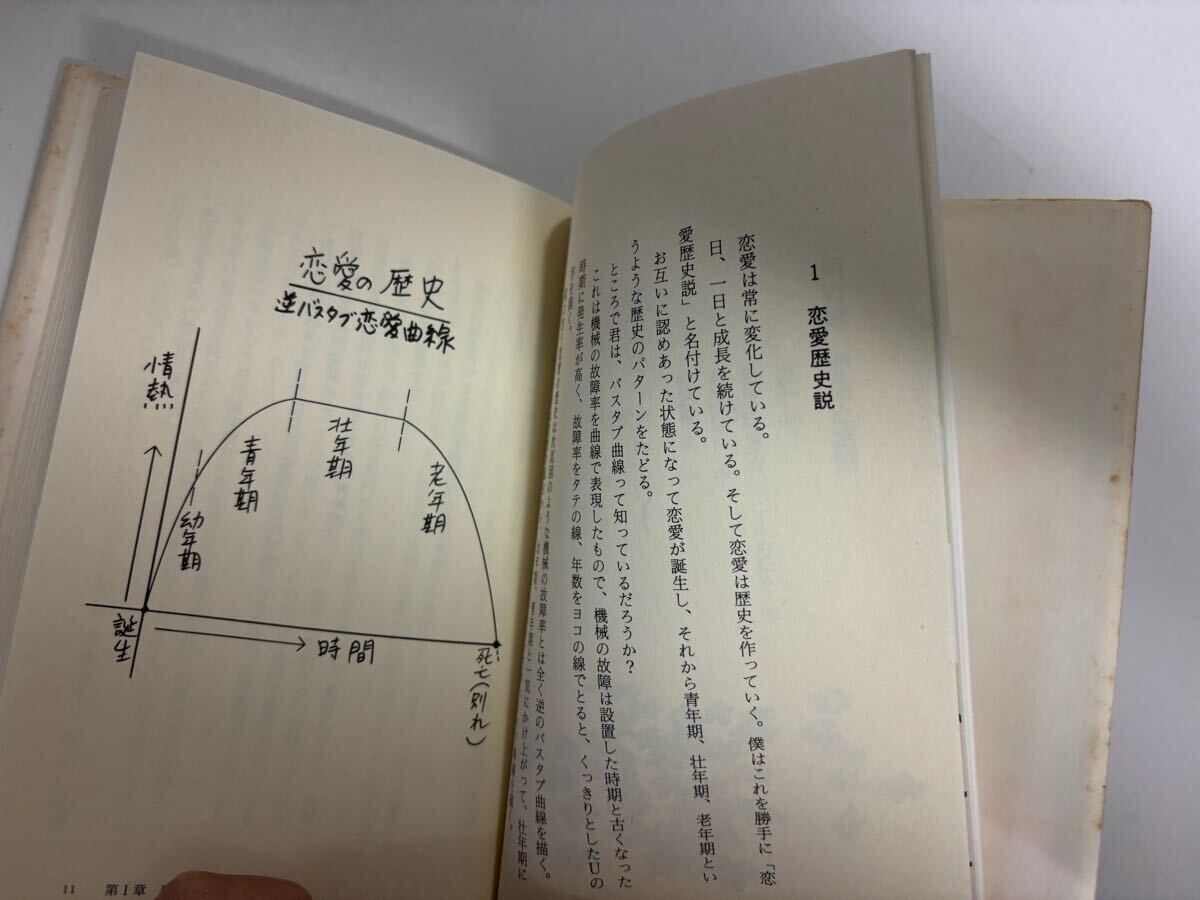 1 恋愛歴史説
恋愛は常に変化している。
日、一日と成長を続けている。そして恋愛は歴史を作っていく。僕はこれを勝手に「恋
愛歴史説」と名付けている。
お互いに認めあった状態になって恋愛が誕生し、それから青年期、壮年期、老年期とい
うような歴史のパターンをたどる。
ところで君は、バスタブ曲線って知っているだろうか?
これは機械の故障率を曲線で表現したもので、機械の故障は設置した時期と古くなった
時期に発生率が高く、故障率をタテの線、年数をヨコの線でとると、くっきりとしたUの
字を描く。
のような機械の故障率とは全く逆のバスタブ曲線を描く。
青年期と一気にかけ上がって、壮年期に
恋愛の歴史
逆バスタブ恋愛曲線
情熱
幼年期
青年期
壮年期
老年期
誕生
時間
死亡(別れ)
11 第1章